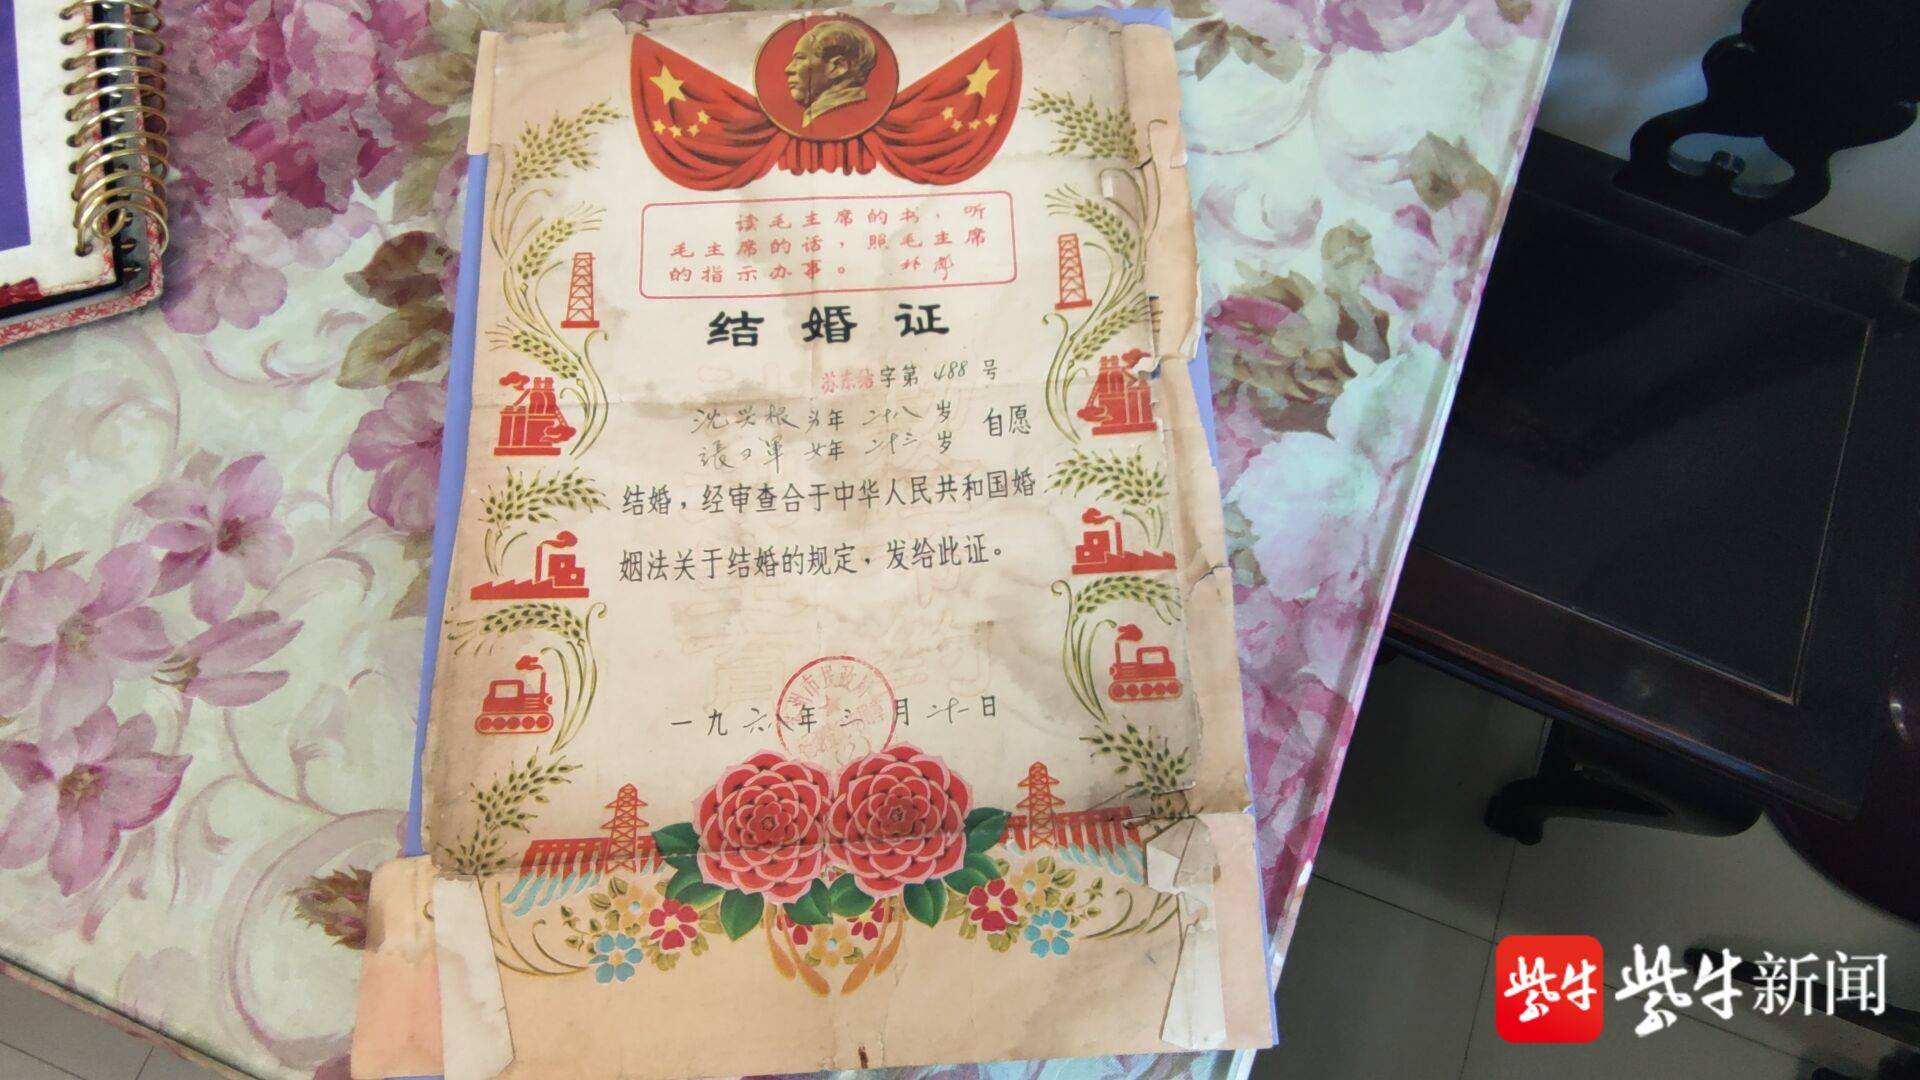 读毛主席的书，听
毛主席的话，照毛主席
的指示办事。 林彪
结婚证
苏东结字第 488 号
沈兴根 男年 二十八 岁
張 女年 二十三 岁
自愿
结婚，经审查合于中华人民共和国婚
姻法关于结婚的规定，发给此证。
一九六八年 三 月 二十一 日
州市民政
紫牛
紫牛新闻